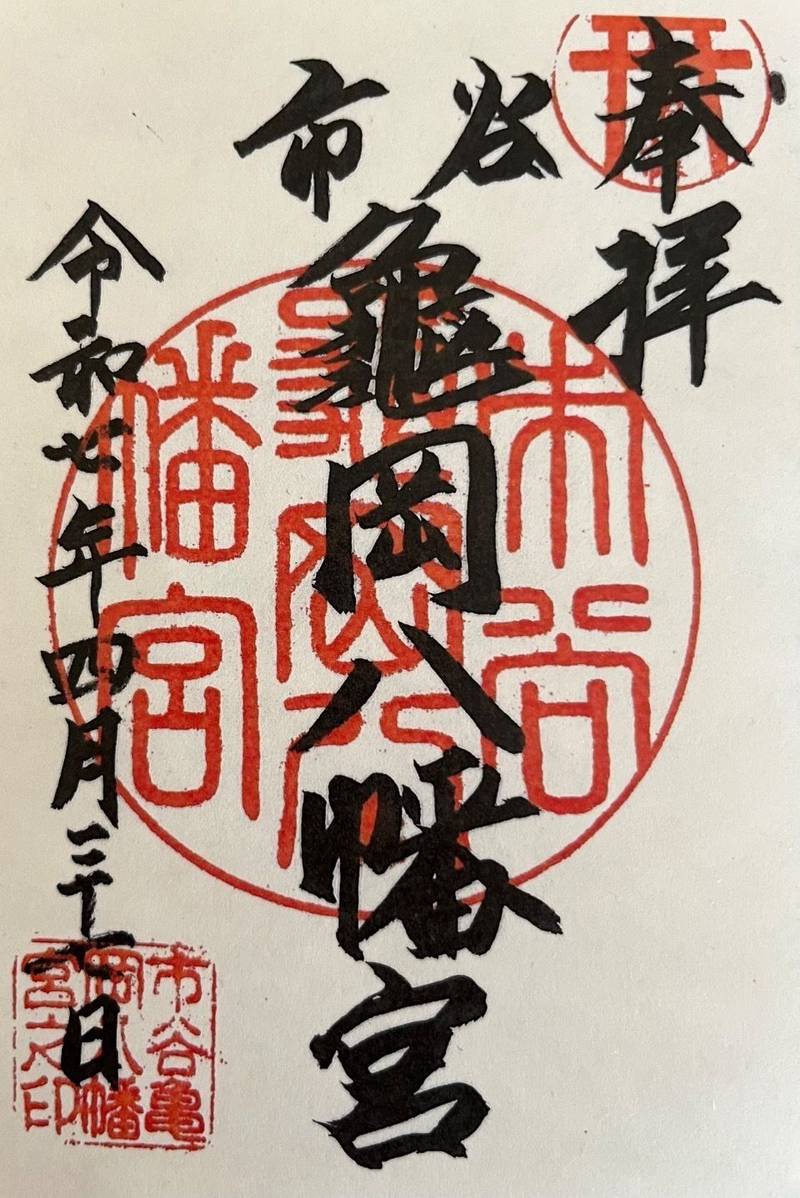 奉拝
市谷
龜岡八幡宮
令和七年四月二十七日
市谷龜岡八幡宮
市谷亀岡八幡宮之印